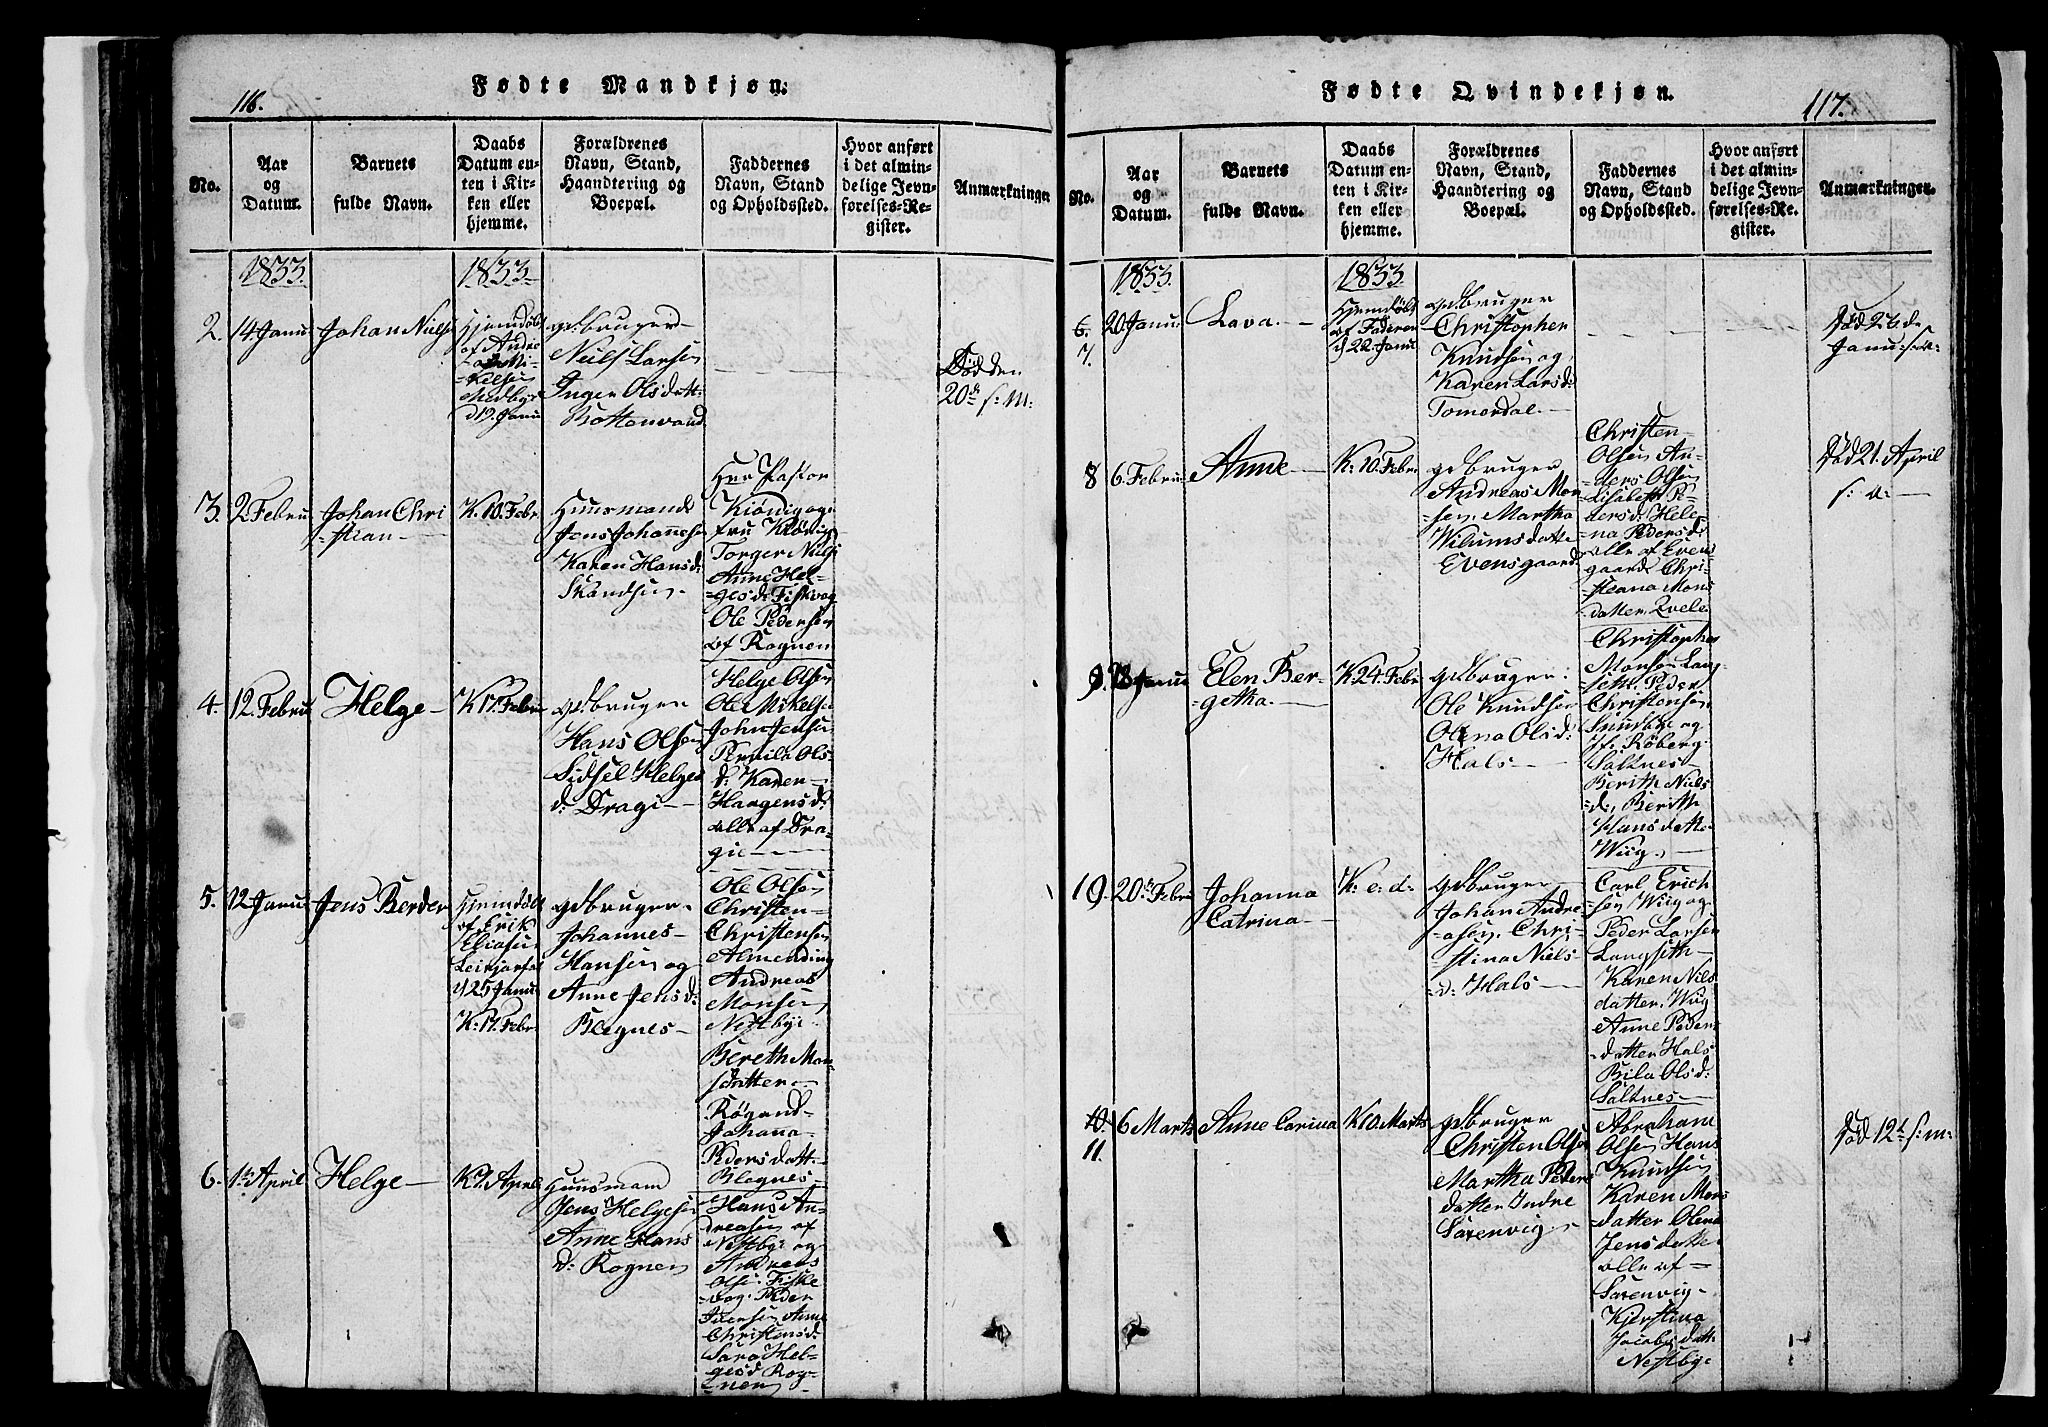 116.
Fødte Mandkjøn:
No.
Aar
og
Datum.
Barnets
fulde Navn.
Daabs
Datum en-
ten i Kir-
ken eller
hjemme.
Forældrenes
Navn, Stand,
Haandtering og
Boepæl.
Faddernes
Navn, Stand
og Opholdssted.
Hvor anført
i det almin-
delige Jevn-
førelses-Re-
gister.
Anmærkninger
1833.
1833
2.
14 Janu
Johan Niels
Hjemdöbt
af Andre
d 19. Janu
gdbruger
Niels Larsen
Ingen Olsdatt:
Bottenvand
Död den
20de s: M:
3.
2 Febru
Johan Chri
=stian
K. 10. Febr.
Huusmand
Jens Johannesen
Karen Hansd:
Skandsen
Her Pastor
Kiönig og
fru Kiönig
Torger Niels
Anne Hel-
=gesd: Fiskvog
Ole Pedersen
af Rognen
4.
12. Febru
Helge
K 17. Febru
gdbruger
Hans Olsen
Sidsel Helges
d: Dragi
Helge Olsen
Ole Mikelsen
John Jensen
Pernila Ols-
d: Karen
Haagensd:
alle af Dra-
gie
5.
12 Janu
Jens Berder
Hjemdöbt
af Erik
Eliasen
d 25 Janu
K: 17. Febr.
gdbruger
Johannes
Hansen og
Anne Jensd:
Blegnes
Ole Olsen
Christen
Christensen
Almending
Andreas
Monsen
Nestbye
Bereth Mon-
sdatter
Rögnand
Johana
Pedersdatt.
Blegnes
6.
1te April
Helge
K 7. April
Huusmand
Jens Helgesen
Anne Hans
d: Rognen
Hans An-
dreasen af
Nestbye og
Andreas
Olsen Fiske
=vog. Peder
Jversen Anne
Christensd:
Sara Hel-
gesd Rog-
=nen
Fødte Qvindekjøn.
117.
No.
Aar
og
Datum.
Barnets
fulde Navn.
Daabs
Datum en-
ten i Kir-
ken eller
hjemme.
Forældrenes
Navn, Stand,
Haandtering og
Boepæl.
Faddernes
Navn, Stand
og Opholdssted.
Hvor anført
i det almin-
delige Jevn-
førelses-Re-
gister.
Anmærkninger.
1833.
1833
6
7.
20 Janu
Lava.
Hjemdöbt
af Faderen
d 22. Janu
gdbruger
Christopher
Knudsen og
Karen Larsd:
Tomerdal
Död 26 de
Janu: s: a:
8
6. Febru
Anne
K: 10. Febr.
gdbruger
Andreas Mon
=sen. Martha
Wilumsdatte
Evensgaard
Christen
Olsen An-
=ders Olsen
Lisabeth Pe-
dersd: Hele-
na Pedersd:
alle af Evens
gaard. Chri-
steana Mons
datter Kvele
Död 21. April
s: a:
9.
18 Janu
Elen Ber-
=getha.
K. 24. Febr
gdbruger:
Ole Knudsen
Olena Olsd:
Hals
Christopher
Monsen Lang
seth. Peder
Christensen
Sundbye og
Jf. Röberg
Saltnes
Berith Niels
=d, Berith
Hansdatte
Wiig.
10.
20de Febr
Johanna
Catrina
K: e: d:
gdbruger
Johan Andre
=asen. Chri-
stina Niels-
=d: Hals
Carl Erich
=sen Wiig og
Peder Larsen
Langseth
Karen Nils
datter. Wiig
Anne Peder-
=datter Hals
Bila Olsd:
Saltnes
10.
11.
6 Marts
Anne Carina
K 10. Marts
gdbruger
Christen Olsen
Martha Peders
datter Indre
Saxenvig
Abraham
Olsen Hans
Knudsen
Karen Mons
datter Olena
Jensdatte
alle af
Saxenvig
Kjerstina
Jacobsdatt
Nestbye
Död 12te s: m: